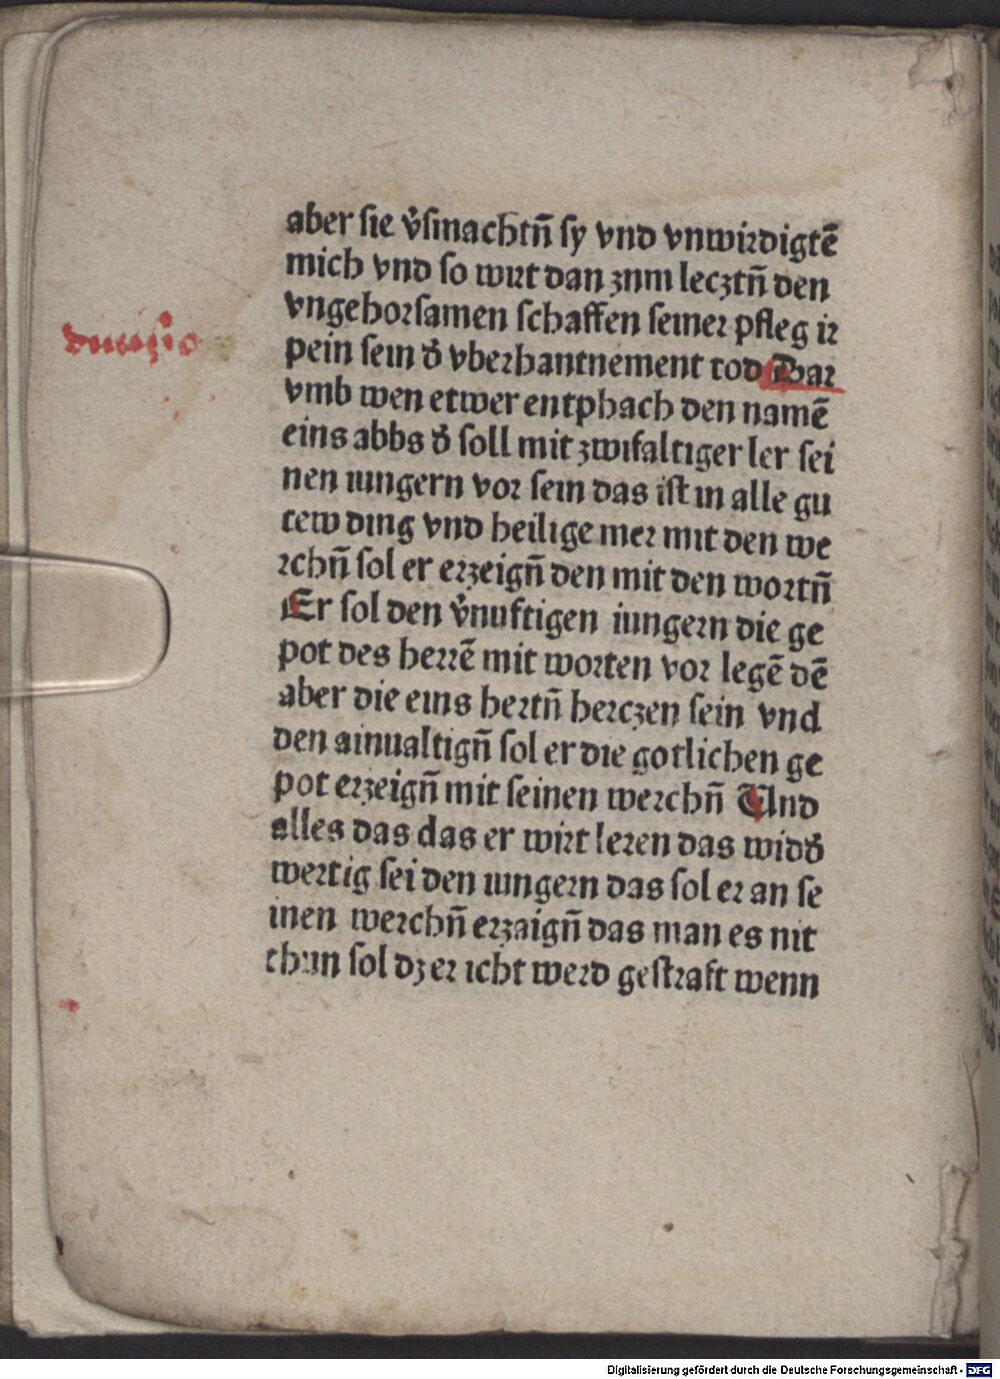 aber sie v̉smachtn̄ sy vnd vnwirdigtē
mich vnd so wirt dan znm lecztn̄ den
vngehorsamen schaffen seiner pfleg ir
pein sein d̉ vberhantnement tod Dar
vmb wen etwer entphach den namē
eins abbs d̉ soll mit zwifaltiger ler sei
nen iungern vor sein das ist in alle gu
tew ding vnd heilige mer mit den we
rchn̄ sol er erzeign̄ den mit den wortn̄
Er sol den v̉nuftigen iungern die ge
pot des herrē mit worten vor legē dē
aber die eins hertn̄ herczen sein vnd
den ainualtign̄ sol er die gotlichen ge
pot erzeign̄ mit seinen werchn̄ Und
alles das das er wirt leren das widd̉
wertig sei den iungern das sol er an se
inen werchn̄ erzaign̄ das man es nit
thun sol dz er icht werd gestraft wenn
Digitalisierung gefördert durch die Deutsche Forschungsgemeinschaft - DFG